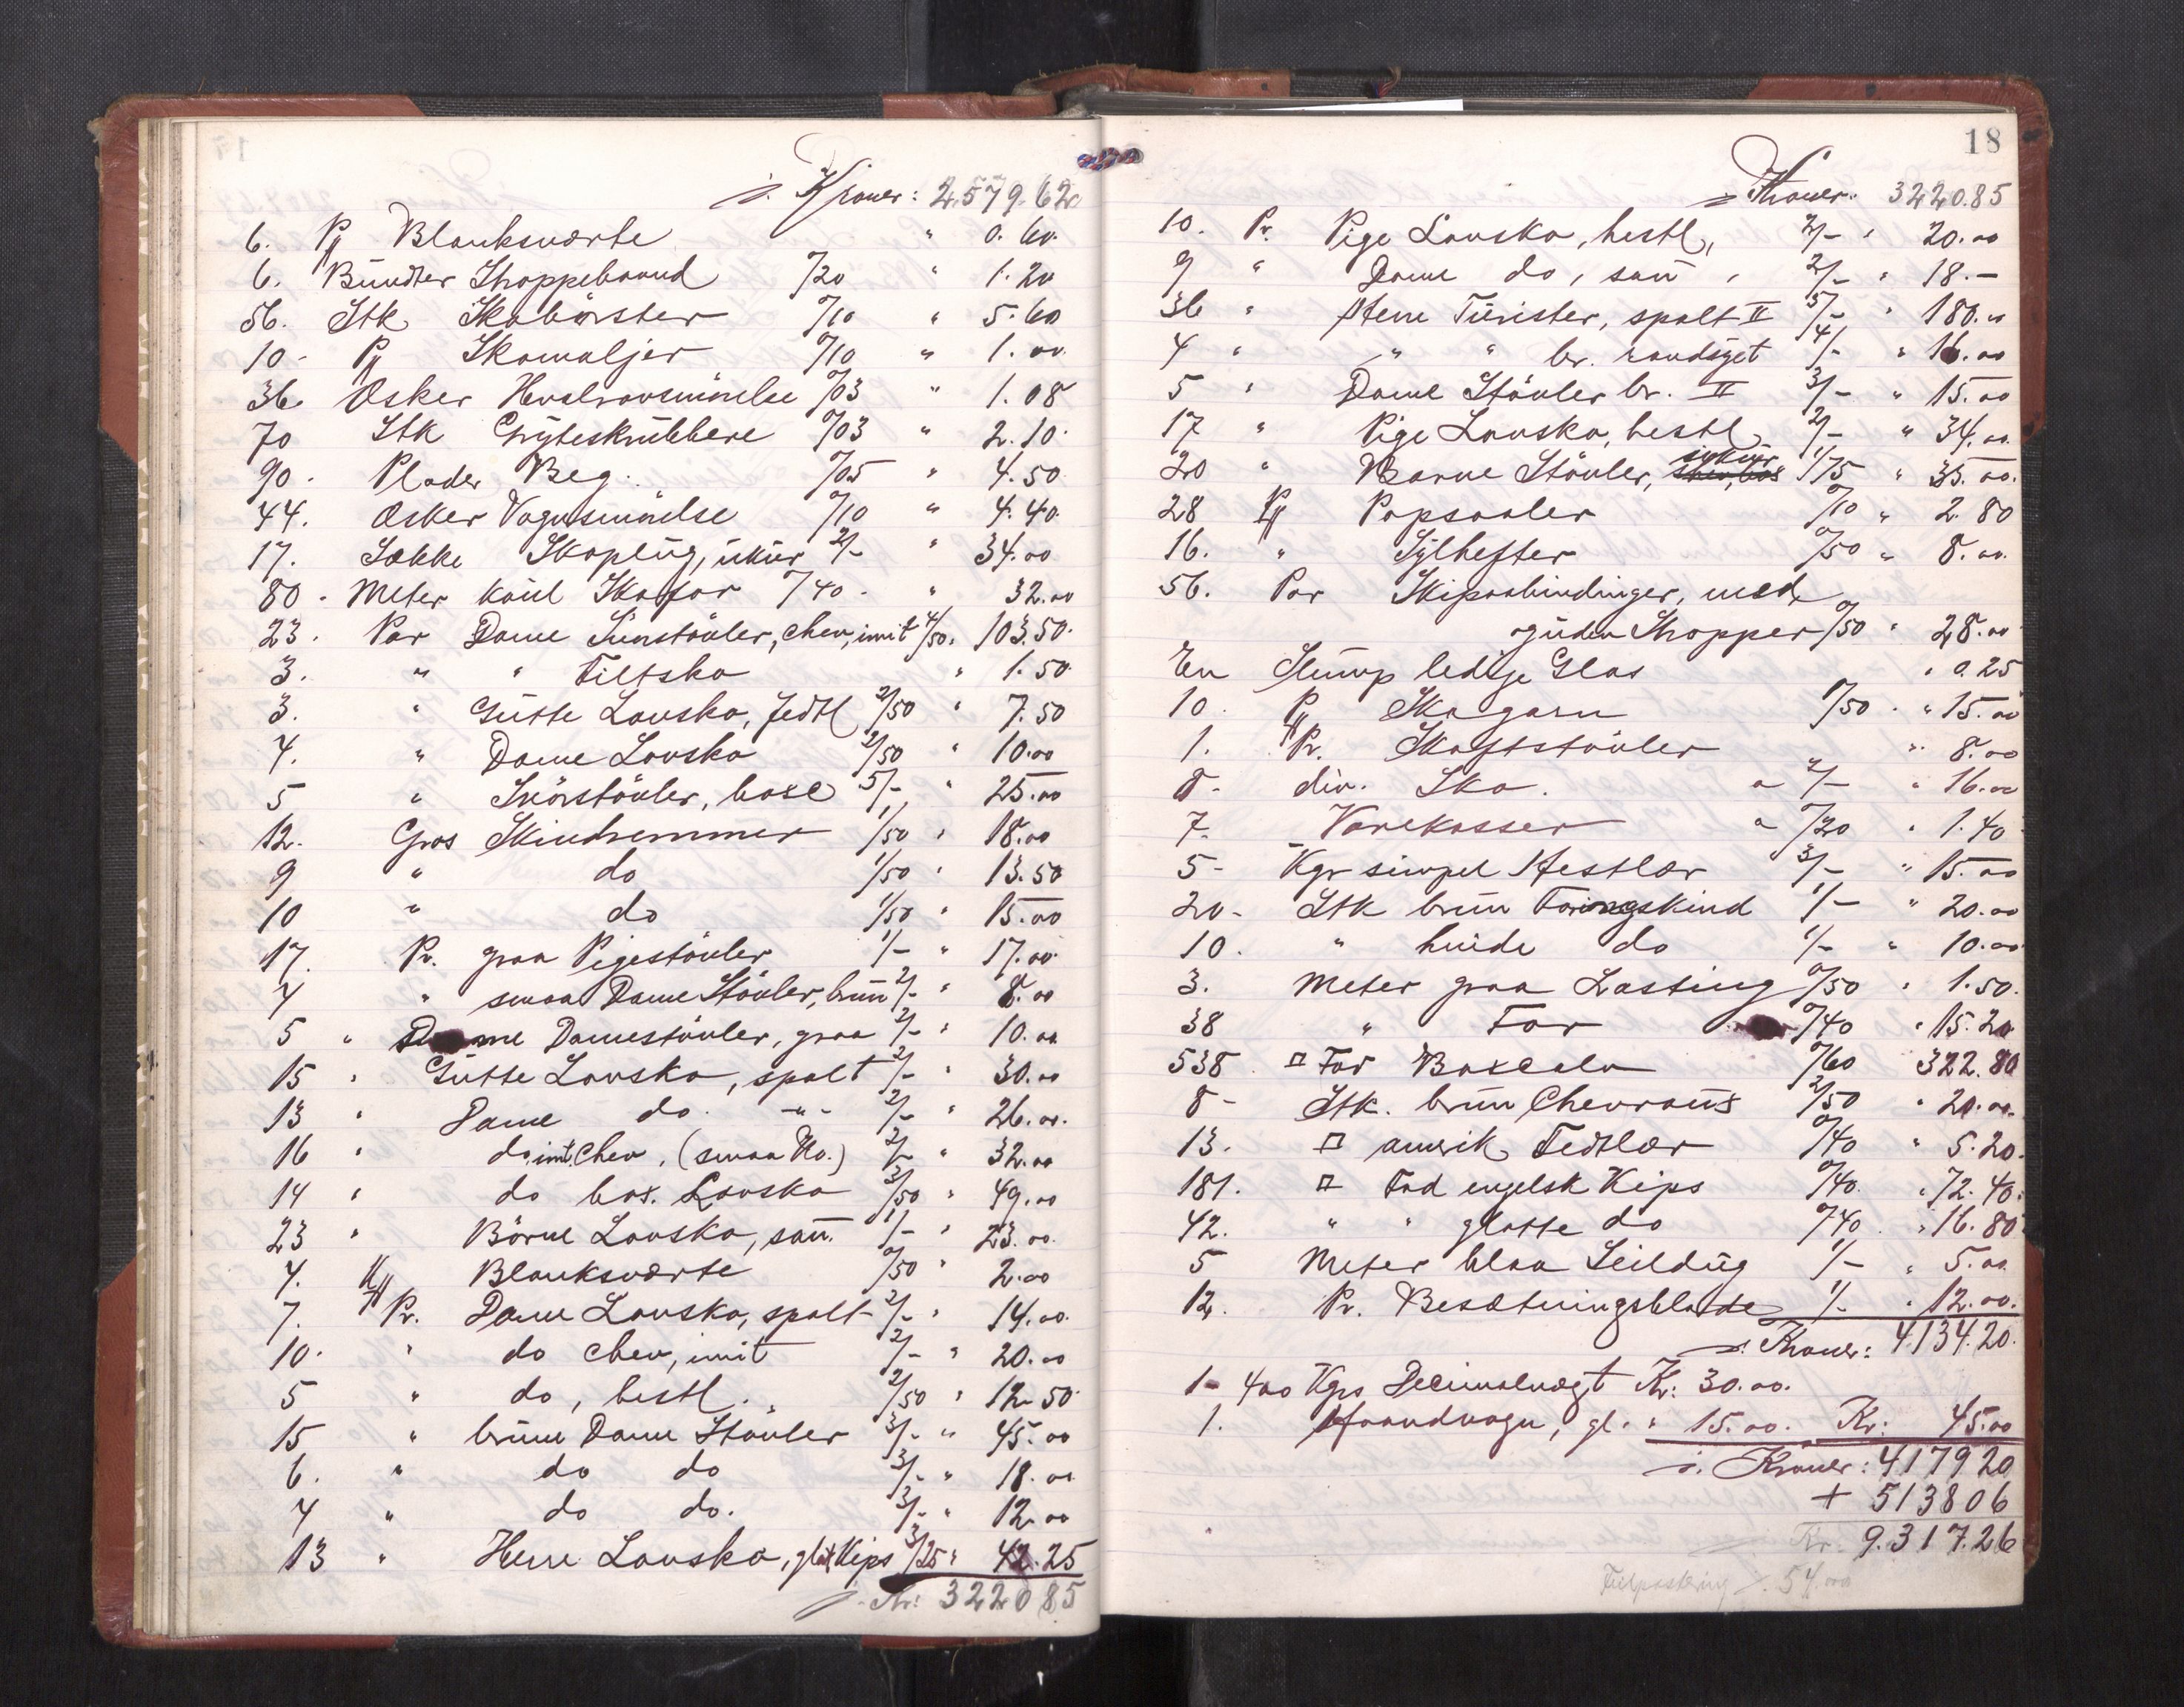 Kroner: 2.579.62
6. Pk Blanksværte " 0.60.
6. Bündter Stroppebaand 0/20 " 1.20
56. Stk Skobörster 0/10 " 5.60
10- Pk Skomaljer 0/10 " 1.00
36 Æsker Hvalravsmörelse 0/03 " 1.08
70 Stk Gryteskrübbere 0/03 " 2.10.
90. Plader Beg. 0/05 " 4.50
44. Æsker Vognsmörelse 0/10 " 4.40.
17. Sække Skoplüg, ükür 2/- " 34.00
80. Meter kóul Skofor 0/40 - " 32.00
23. Par Dame Snörstövler, chev, imit 4/50. 103.50.
3. " " Filtsko " 1.50
3. " Gütte Lavsko, fedtl 2/50 " 7.50
4. " Dame Lavsko 2/50 " 10.00
5 " Snörstövler, boxc 5/- " 25.00
12. Gros Skindremmer 1/50 " 18.00
9 " do 1/50 " 13.50
10 " do 1/50 " 15.00
17. Pr. graa Pigestövler 1/- " 17.00
4 " smaa Dame Stövler, brün 2/- " 8.00
5 " Dame Damestövler, graa 2/- " 10.00
15 " Gütte Lavsko, spalt 2/- " 30.00
13 " Dame do. -"- 2/- " 26.00.
16 " do imt. Chev, (smaa No.) 2/- " 32.00
14 " do box. Lavsko 3/50 " 49.00
23 " Börne Lavsko, saū. 1/- " 23.00.
4. Pk Blanksværte 0/50 " 2.00
7. Pr. Dame Lavsko, spalt 2/- " 14.00.
10. " do chev, imit 2/- " 20.00
5 " do, hestl. 2/50 " 12.50.
15 " brüne Dame Stövler 3/- " 45.00
6. " do do 3/- " 18.00
4 " do do. 3/- " 12.00
13 " Herre Lavsko, glat Kips 3/25 " 42.25
Kr: 3220.85
18
Kroner: 3220.85
10. Pr. Pige Lavsko, hestl, 2/- " 20.00
9 " Dame do, saū, 2/- " 18.-
36 " Herre Türister, spalt II 5/- " 180.00
4 " " " br. randsyet 4/- " 16.00
5 " Dame Stövler br. II 3/- " 15.00
17 " Pige Lavsko, hestl, 2/- " 34.00.
20 " Barne Stövler, 1/75 " 35.00.
28 Pk Papsaaler 0/10 " 2.80
16. " Sylhefter 0/50 " 8.00.
56. Par Skipaabindinger, med
güden Stropper 0/50 " 28.00
En Slump ledige Glas " 0.25
10. Pk Skogarn 1/50 " 15.00
1. Pr. Skaftstövler " 8.00
8- div. Sko. a 2/- " 16.00
7. Varekasser a 0/20 " 1.40
5- Kgr simpel Hestlær 3/- " 15.00
20- Stk brün Foringskind 1/- " 20.00
10. " hvide do 1/- " 10.00
3. Meter graa Lasting 0/50 " 1.50.
38 " For 0/40 " 15.20
538. □ Fod Boxcalv 0/60 322.80
8- Stk. brün Chevraüx 2/50 " 20.00.
13. □ amerik Fedtlær 0/40 " 5.20.
181. □ Fod engelsk Kips 0/40. " 72.40.
42. " " glatte do 0/40. " 16.80
5 Meter blaa Seildüg 1/- " 5.00
12. Pr. Besætningsblade 1/- " 12.00.
Kroner: 4.134.20.
1- 400 Kgrs Decimalvægt Kr: 30.00.
1. Haandvogn, gl. " 15.00. Kr: 45.00
Kroner: 4179 20
+ 5138 06
Kr. 9.317.26
Tilpostering 54.00